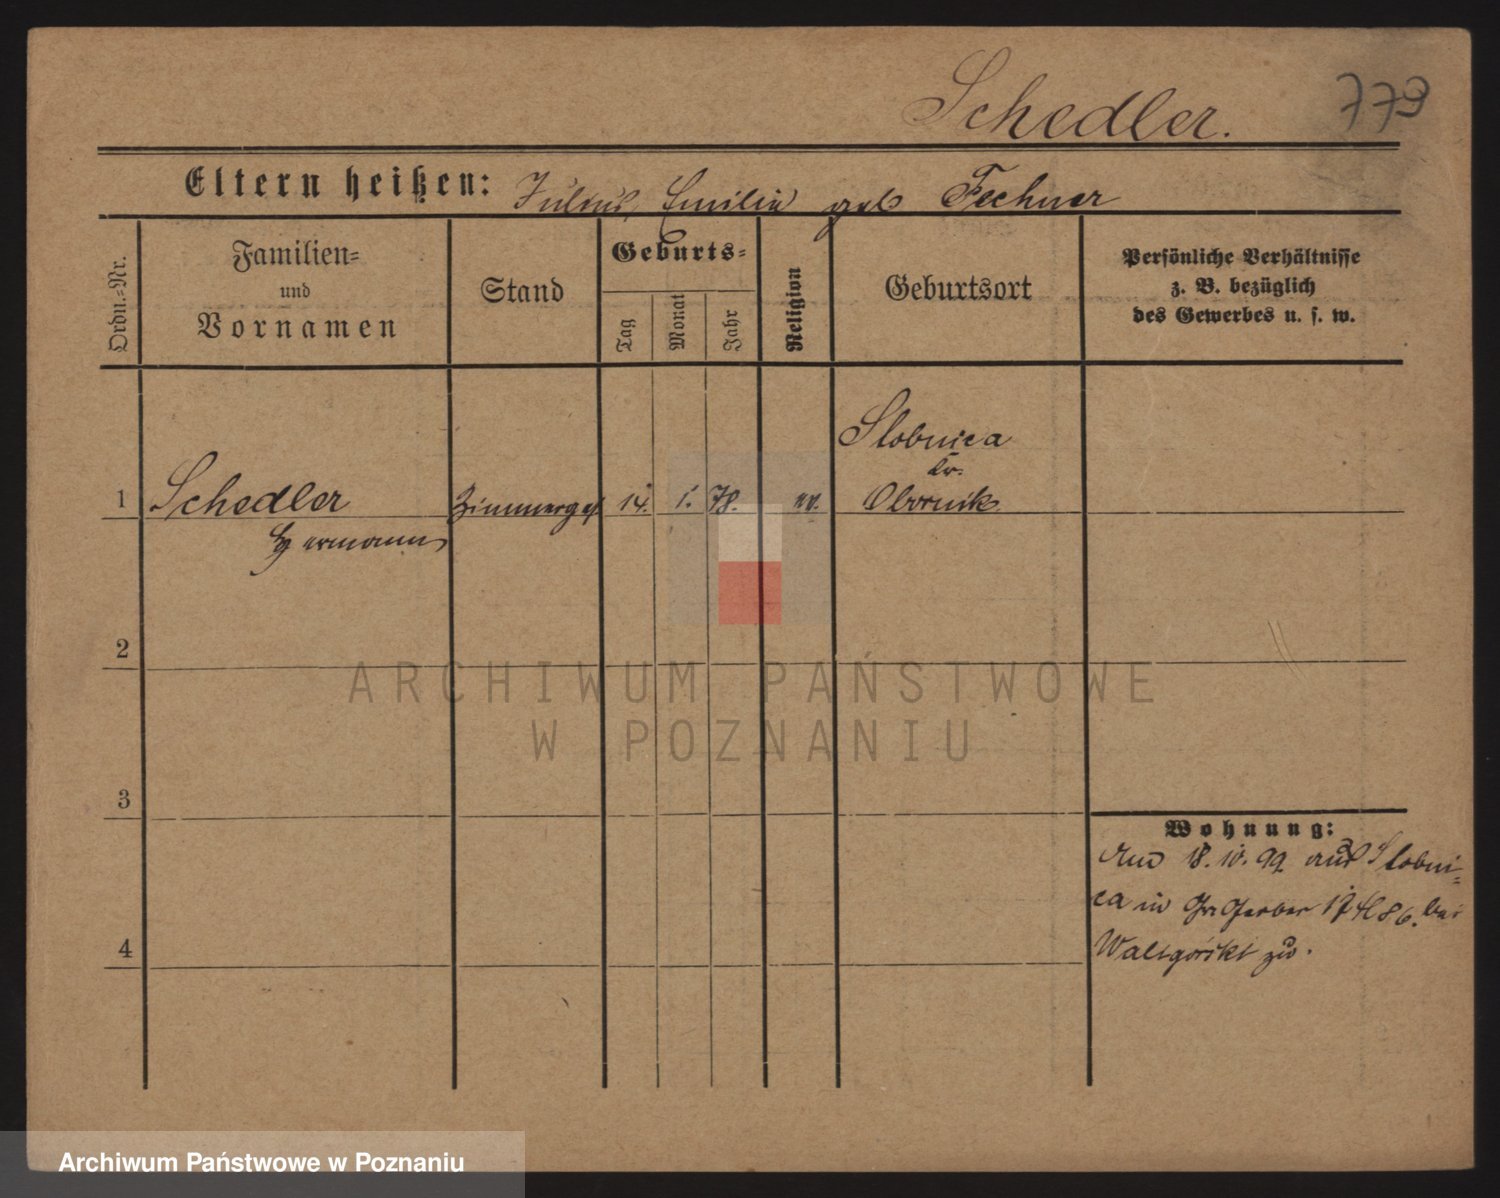 Schedler.
773
Eltern heißen: Julius, Emilia geb Fechner
Ordn.=Nr.
Familien=
und
Vornamen
Stand
Geburts=
Tag
Monat
Jahr
Religion
Geburtsort
Persönliche Verhältnisse
z. B. bezüglich
des Gewerbes u. s. w.
1
Schedler
Hermann
Zimmerges
14.
1.
78.
ev.
Slobnica
Kr.
Obornik
2
ARCHIWUM PAŃSTWOWE
W POZNANIU
3
4
Wohnung:
Am 18. 10. 99 aus Slobni=
ca in Gr Gerber 17 bei
zu.
Archiwum Państwowe w Poznaniu